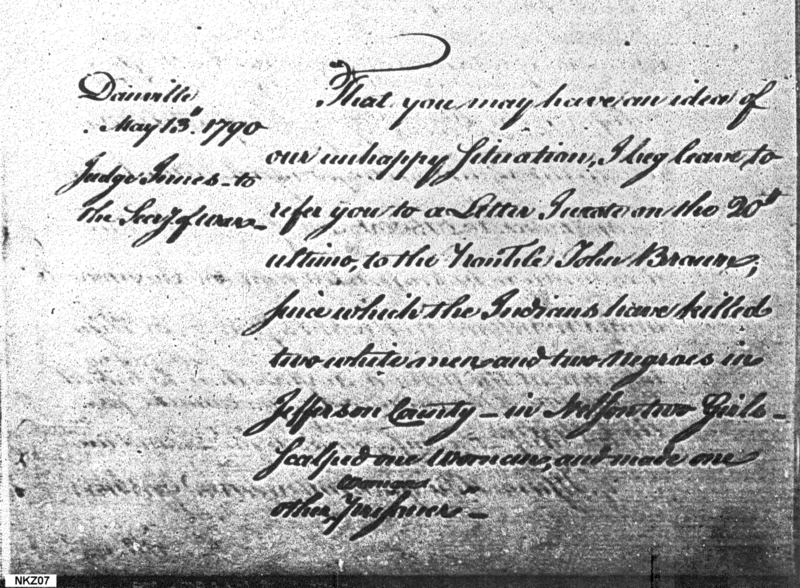 Danville
May 13th. 1790
Judge Innes - to
the Secy of war -
That you may have an idea of
our unhappy situation, I beg leave to
refer you to a Letter I wrote on the 20th
ultimo, to the Honble John Brown,
since which the Indians have killed
two white men and two Negroes in
Jefferson County - in Nelson two Girls -
scalped one Woman, and made one
woman
other, Prisoner -
NKZ07